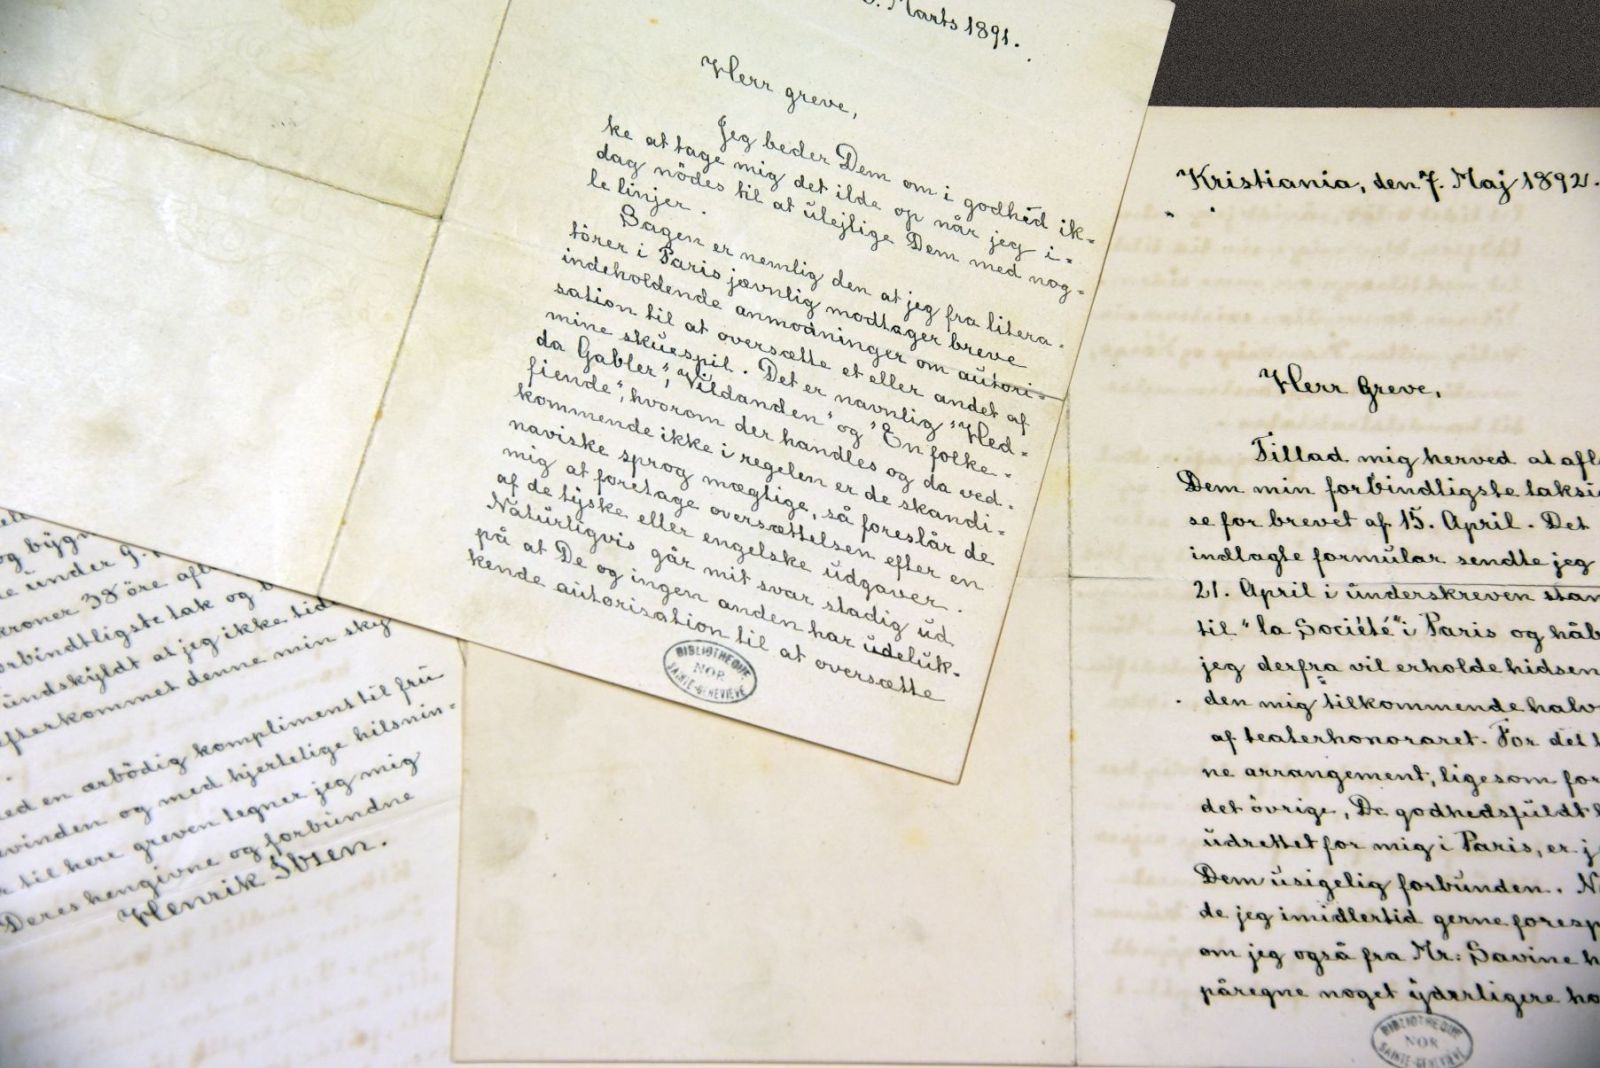 Marts 1891.
Herr greve,
Jeg beder Dem om i godhed ik-
ke at tage mig det ilde op når jeg i-
dag nödes til at ulejlige Dem med nog-
le linjer.
Sagen er nemlig den at jeg fra litera-
törer i Paris jævnlig modtager breve
indeholdende anmodninger om autori-
sation til at oversætte et eller andet af
mine skuespil. Det er navnlig "Hed-
da Gabler", "Vildanden" og "En folke-
fiende", hvorom der handles og da ved-
kommende ikke i regelen er de skandi-
naviske sprog mægtige, så foreslår de
mig at foretage oversættelsen efter en
af de tyske eller engelske udgaver.
Naturligvis går mit svar stadig ud
på at De og ingen anden har udeluk-
kende autorisation til at oversætte
BIBLIOTHEQUE
NOR
SAINTE-GENEVIÈVE
og bygn
under 9.
kroner 38 öre
forbindtligste tak og
undskyldt at jeg ikke tid
efterkommet denne min sky
en ærbödig kompliment til fru
grevinden og med hjertelige hilsnin-
til herr greven tegner jeg mig
Deres hengivne og forbundne
Henrik Ibsen.
Kristiania, den 7. Maj 1892.
Herr Greve,
Tillad mig herved at afl
Dem min forbindtligste taksi
se for brevet af 15. April. Det
indlagte formular sendte jeg
21. April i underskreven stan
til "la Société" i Paris og håb
jeg derfra vil erholde hidsen
den mig tilkommende halv
af teaterhonoraret. For det
ne arrangement, ligesom for
det övrige, De godhedsfuldt
udrettet for mig i Paris, er j
Dem usigelig forbunden. N
de jeg imidlertid gerne foresp
om jeg også fra Mr: Savine h
påregne noget yderligere ho
BIBLIOTHEQUE
NOR
SAINTE-GENEVIÈVE